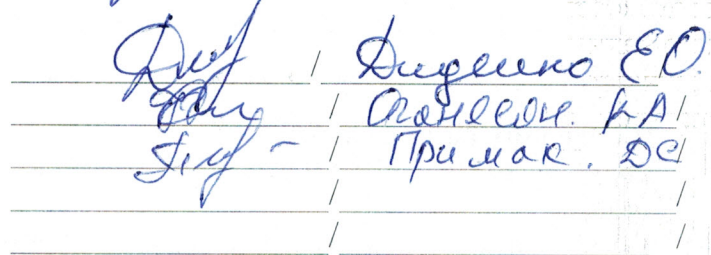 / Диденко ЕО.
/ Оганесян. КА /
/ Примак. ДС /
/ /
/ /